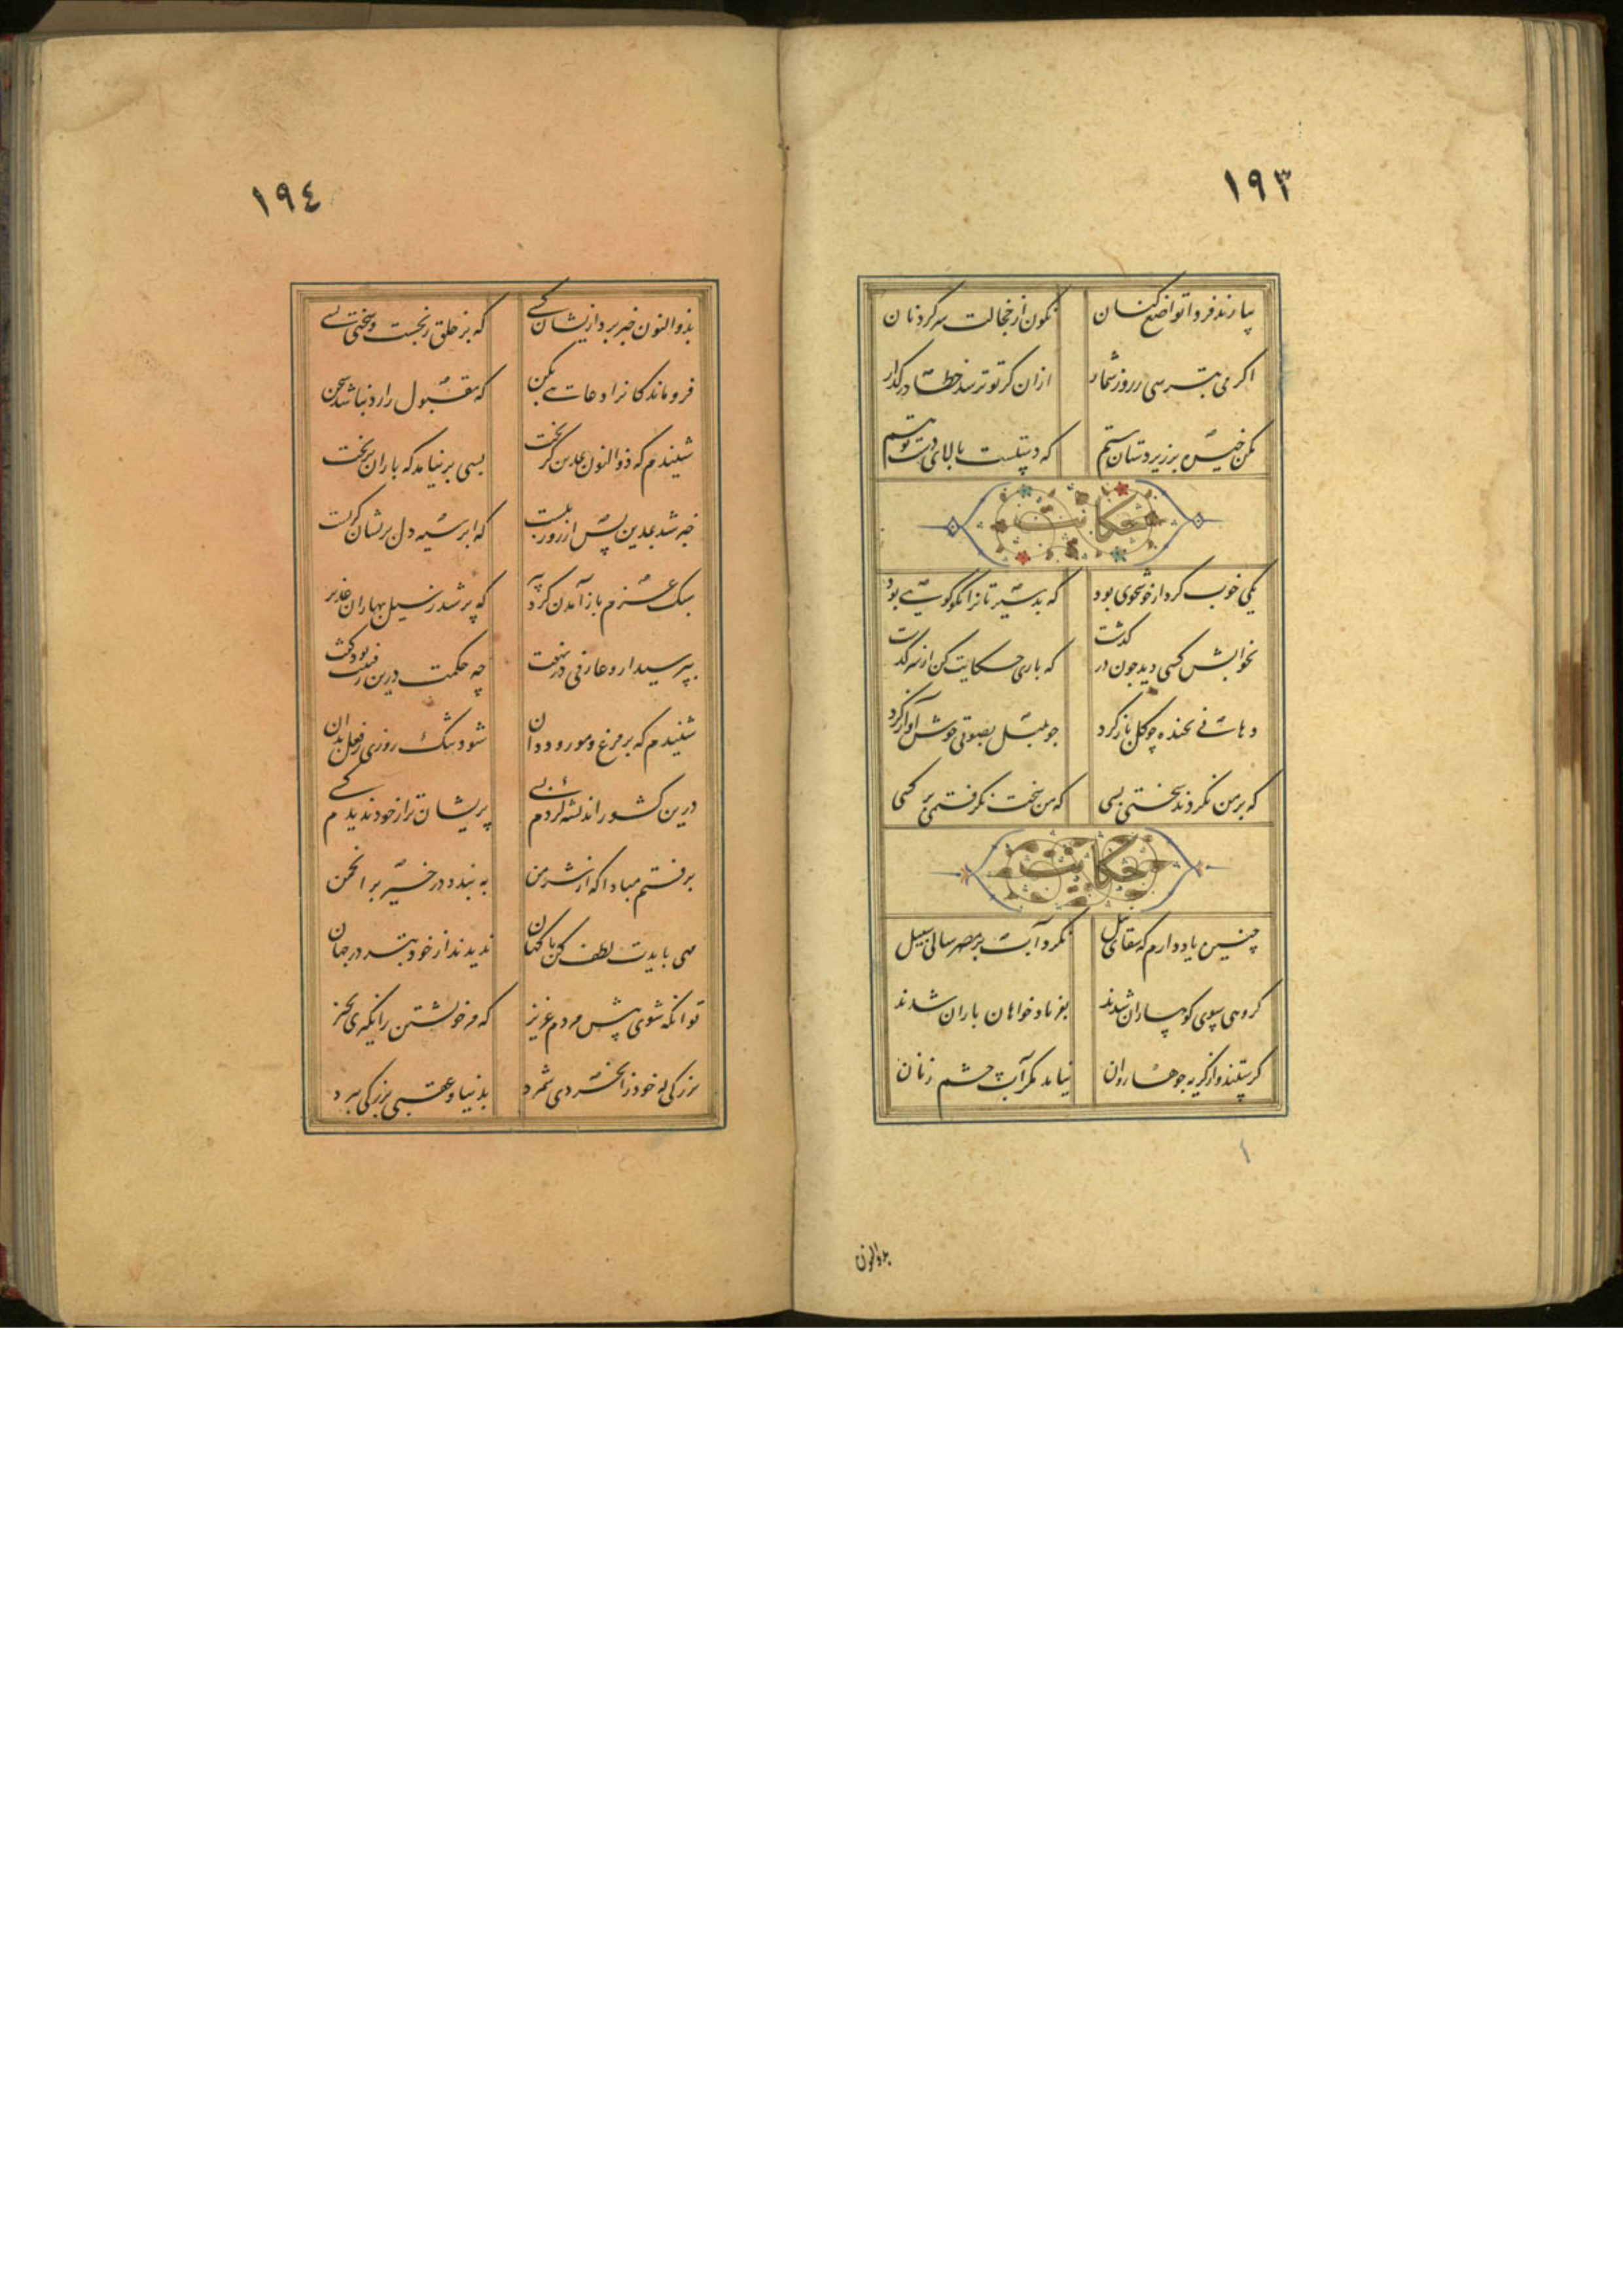 ١٩٣
بیارند فردا تواضع کنان نگون از خجالت سر گردنان
اگر می بترسی ز روز شمار ازان کز تو ترسد خطا در گذار
مکن خیره بر زیردستان ستم که دستیست بالای دست تو هم
حکایت
یکی خوب کردار خوشخوی بود که بد سیرتانرا نکوگوی بود
بخوابش کسی دید چون در گذشت که باری حکایت کن از سرگذشت
دهانی بخنده چو گل باز کرد چو بلبل بصوتی خوش آواز کرد
که بر من نکردند سختی بسی که من سخت نگرفتمی بر کسی
حکایت
چنین یاد دارم که سقای نیل نکرد آب بر مصر سالی سبیل
گروهی سوی کوهساران شدند بفریاد خواهان باران شدند
گرستند و از گریه جوها روان نیامد مگر آب چشم زنان
بذوالنون
١٩٤
بذوالنون خبر برد ازیشان کسی که بر خلق رنجست و سختی بسی
فروماندگانرا دعائی بکن که مقبول را رد نباشد سخن
شنیدم که ذوالنون بمدین گریخت بسی بر نیامد که باران بریخت
خبر شد بمدین پس از روز بیست که ابر سیه دل بریشان گریست
سبک عزم باز آمدن کرد پیر که پر شد ز سیل بهاران غدیر
بپرسید ازو عارفی در نهفت چه حکمت درین رفتنت بود گفت
شنیدم که بر مرغ و مور و ددان شود تنگ روزی ز فعل بدان
درین کشور اندیشه کردم بسی پریشان تر از خود ندیدم کسی
برفتم مبادا که از شر من به بندد در خیر بر انجمن
مهی بایدت لطف کن با کهان ندیدند از خود بتر در جهان
تو آنگه شوی پیش مردم عزیز که مر خویشتن را نگیری بچیز
بزرگی که خود را بخردی شمرد بدنیا و عقبی بزرگی ببرد